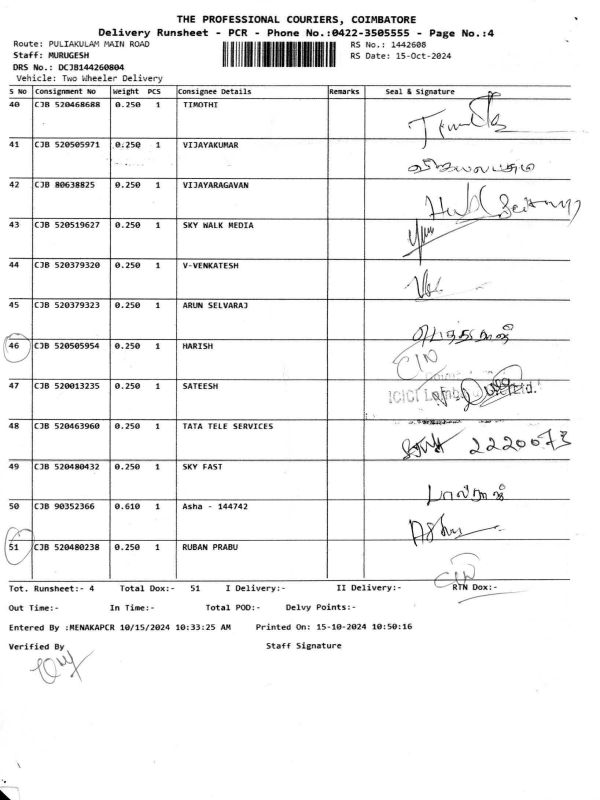 THE PROFESSIONAL COURIERS, COIMBATORE
Delivery Runsheet - PCR - Phone No.:0422-3505555 - Page No.:4
Route: PULIAKULAM MAIN ROAD RS No.: 1442608
Staff: MURUGESH RS Date: 15-Oct-2024
DRS No.: DCJB144260804
Vehicle: Two Wheeler Delivery
S No Consignment No Weight PCS Consignee Details Remarks Seal & Signature
40 CJB 520468688 0.250 1 TIMOTHI
41 CJB 520505971 0.250 1 VIJAYAKUMAR
42 CJB 80638825 0.250 1 VIJAYARAGAVAN
43 CJB 520519627 0.250 1 SKY WALK MEDIA
44 CJB 520379320 0.250 1 V-VENKATESH
45 CJB 520379323 0.250 1 ARUN SELVARAJ
46 CJB 520505954 0.250 1 HARISH
47 CJB 520013235 0.250 1 SATEESH
48 CJB 520463960 0.250 1 TATA TELE SERVICES 2220073
49 CJB 520480432 0.250 1 SKY FAST
50 CJB 90352366 0.610 1 Asha - 144742
51 CJB 520480238 0.250 1 RUBAN PRABU
Tot. Runsheet:- 4 Total Dox:- 51 I Delivery:- II Delivery:- RTN Dox:-
Out Time:- In Time:- Total POD:- Delvy Points:-
Entered By :MENAKAPCR 10/15/2024 10:33:25 AM Printed On: 15-10-2024 10:50:16
Verified By Staff Signature